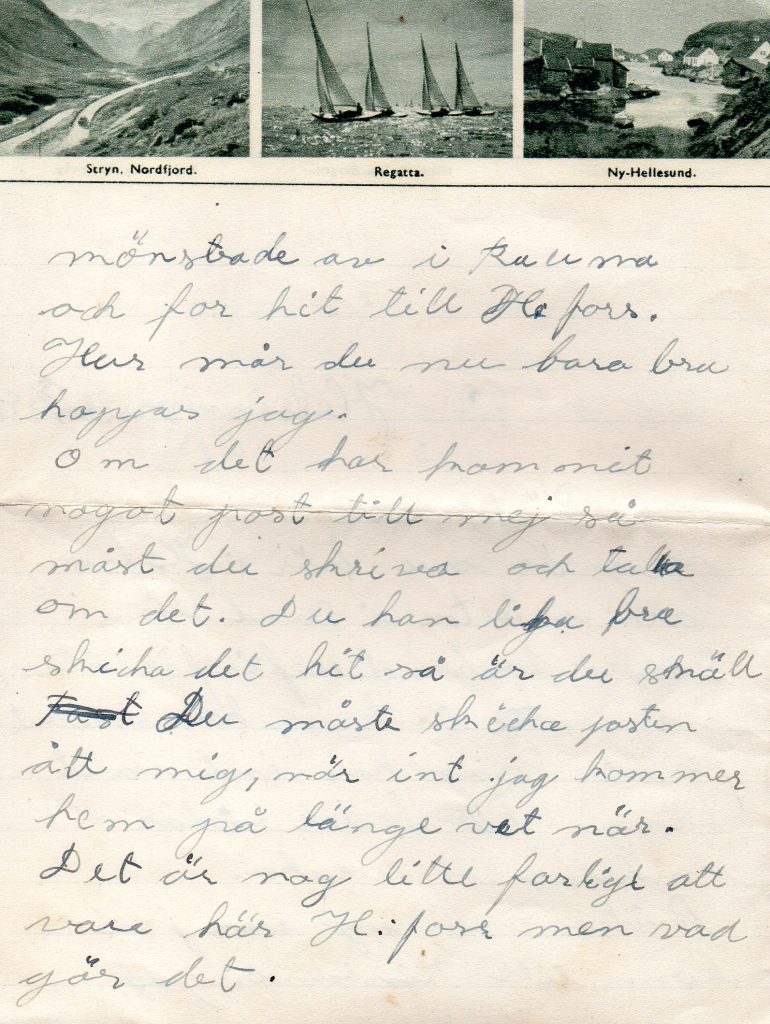 Stryn. Nordfjord.
Regatta.
Ny-Hellesund.
mönstrade av i Rauma
och for hit till H:fors.
Hur mår du nu bara bra
hoppas jag.
Om det har kommit
nogot post till mej så
måst du skriva och tala
om det. Du kan lika bra
skicka det hit så är du snäll
Fast Du måste skicka posten
ått mig, när int jag kommer
hem på länge vet när.
Det är nog litte farligt att
vara här H:fors men vad
gör det.